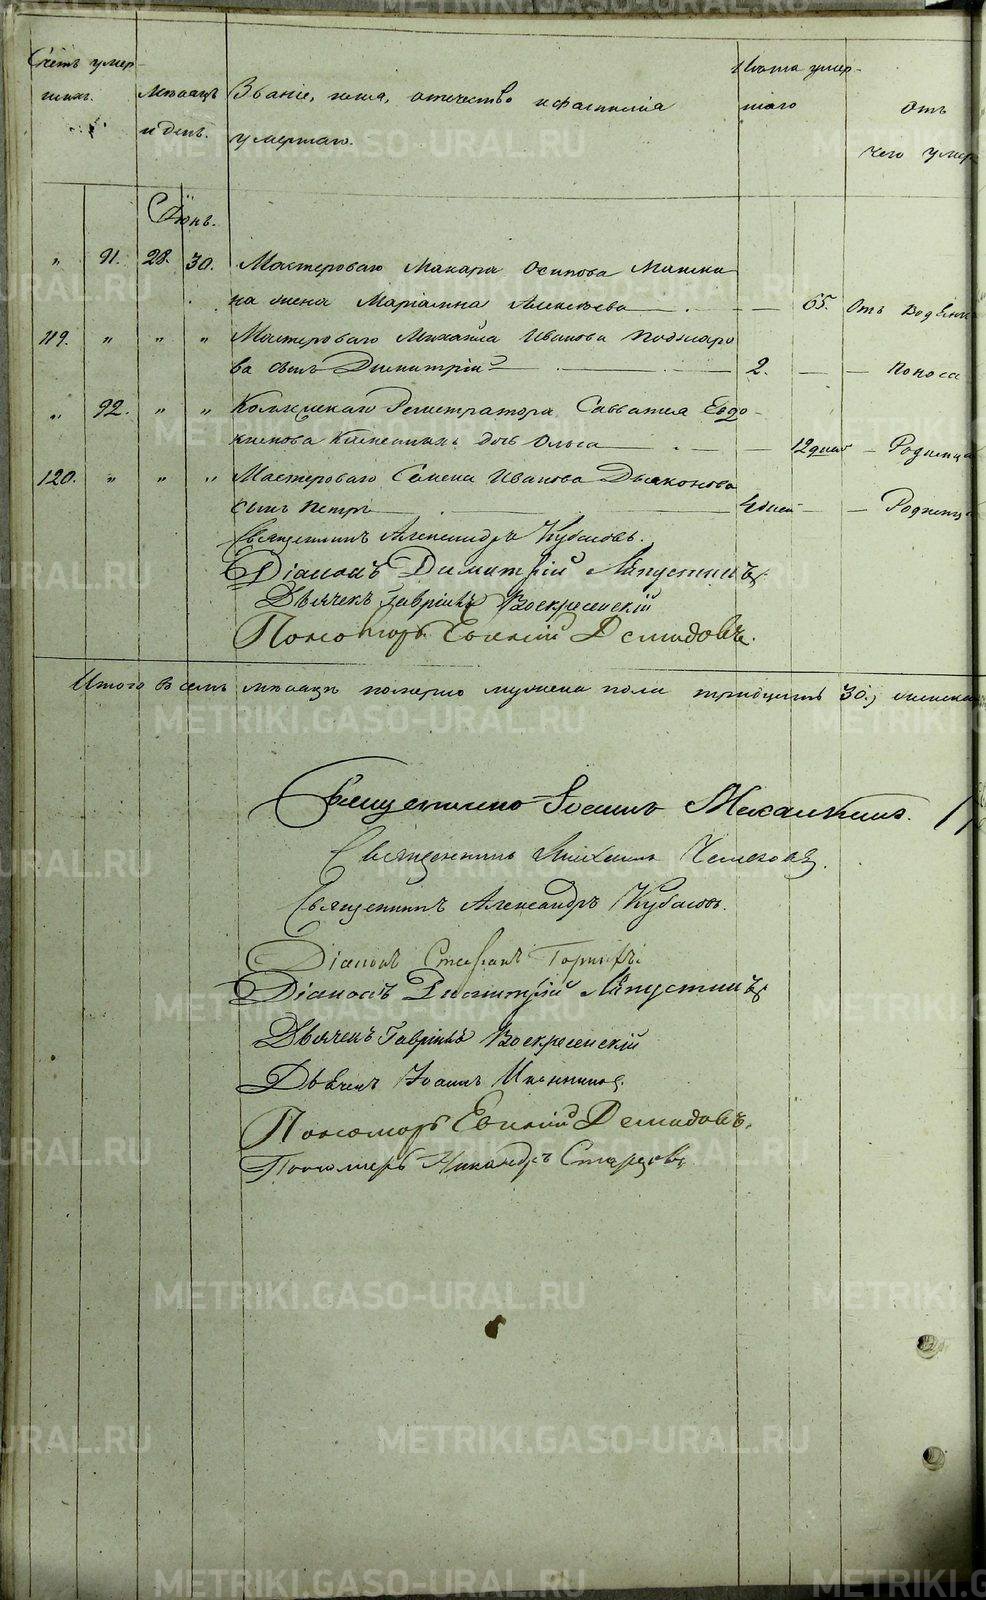 Счетъ умер-
шихъ.
Мѣсяцъ
и день.
Званіе, имя, отечество и фамилія
умершаго.
Лѣта умер-
шаго
Отъ
чего умер
Іюнь.
" 91. 28. 30. Мастероваго Макара Осипова
на жена Маріамна Алексѣева 65. Отъ водян
119. " " " Мастероваго Михаила Иванова
ва сынъ Димитрій 2. Поноса
" 92. " " Регистратора Савватія Евдо-
кимова дочь Ольга 12 дней Родимца
120. " " " Мастероваго Семена Иванова Дьяконова
сынъ Петръ дней Родимц
Священникъ Александръ Кубасовъ.
Діаконъ Димитрій Ляпустинъ.
Дьячекъ Гавріилъ Воскресенскій
Пономарь Евгеній Демидовъ.
Итого въ семъ мѣсяцѣ померло мужеска пола тридцать 30., женска
Священникъ Іоаннъ
Священникъ Михаилъ
Священникъ Александръ Кубасовъ.
Діаконъ Стефанъ
Діаконъ Димитрій Ляпустинъ
Дьячекъ Гавріилъ Воскресенскій
Дьячекъ Іоаннъ
Пономарь Евгеній Демидовъ.
Пономарь Никандръ Старцовъ.
METRIKI.GASO-URAL.RU